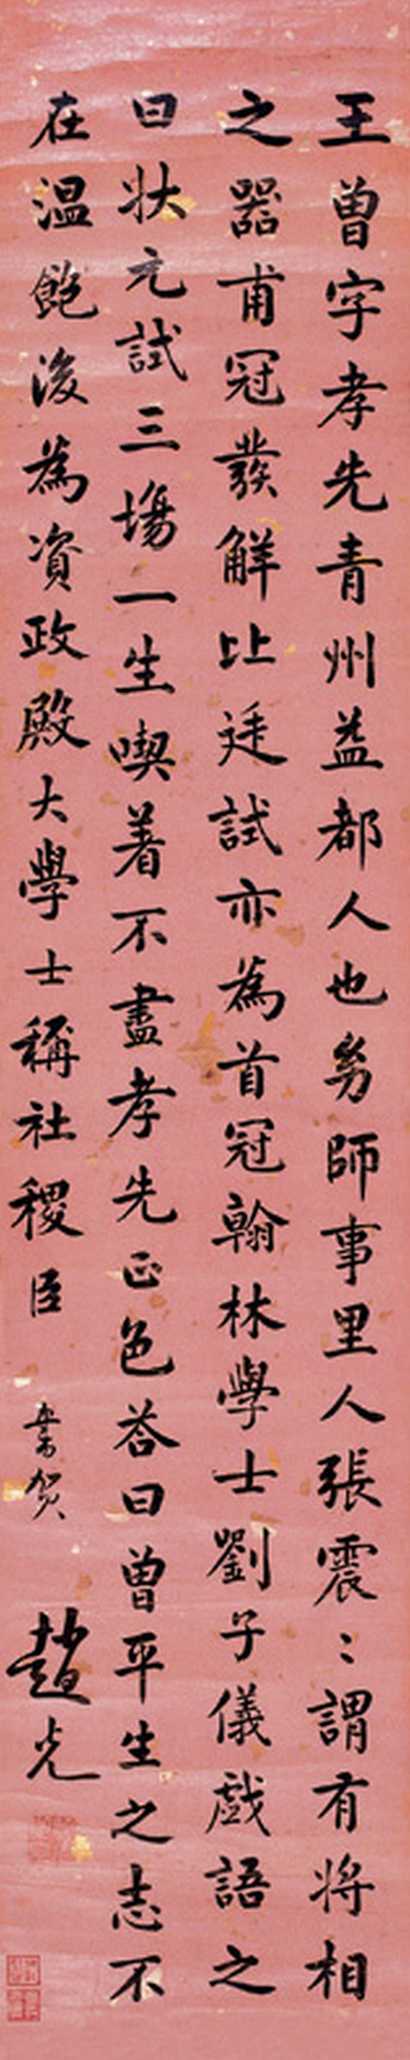 王曾字孝先青州益都人也幼師事里人張震〻謂有將相
之器甫冠發解比廷試亦為首冠翰林學士劉子儀戲語之
曰狀元試三場一生喫著不盡孝先正色荅曰曾平生之志不
在溫飽後為資政殿大學士稱社稷臣
趙光